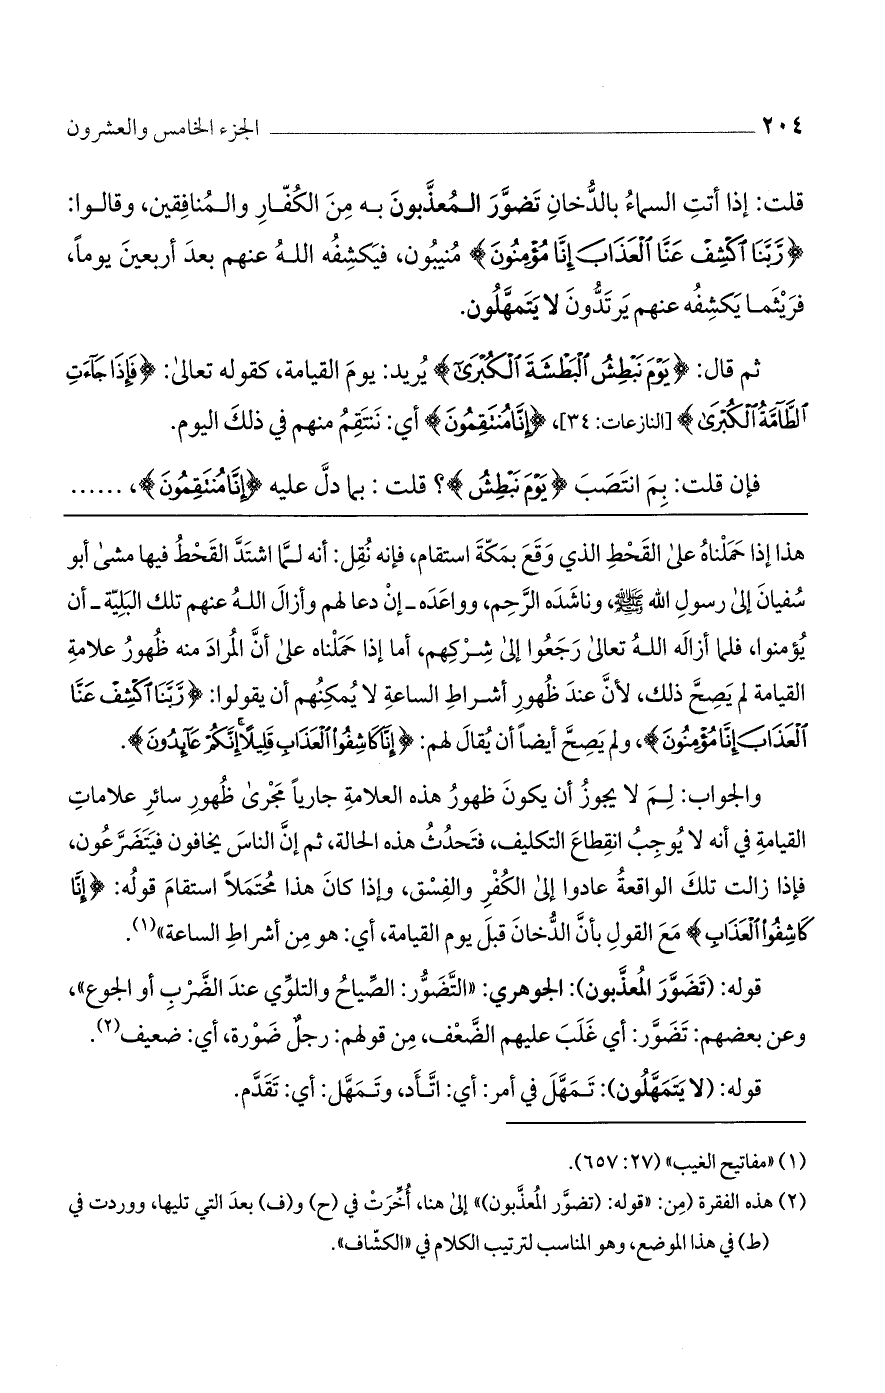 ٢٠٤ ــــــــــــــــــــ الجزء الخامس والعشرون
قلت: إذا أتتِ السماءُ بالدُّخانِ تَضوَّرَ الـمُعذَّبونَ بـه مِنَ الكُفّـارِ والـمُنافِقين، وقالـوا:
﴿رَّبَّنَا ٱكۡشِفۡ عَنَّا ٱلۡعَذَابَ إِنَّا مُؤۡمِنُونَ﴾ مُنيبُون، فيَكشِفُه اللـهُ عنهم بعدَ أربعينَ يوماً،
فرَيْثَمـا يَكشِفُه عنهم يَرتَدُّونَ لا يَتمهَّلُون.
ثم قال: ﴿يَوۡمَ نَبۡطِشُ ٱلۡبَطۡشَةَ ٱلۡكُبۡرَىٰٓ﴾ يُريد: يومَ القيامة، كقوله تعالىٰ: ﴿فَإِذَا جَآءَتِ
ٱلطَّآمَّةُ ٱلۡكُبۡرَىٰ﴾ [النازعات: ٣٤]، ﴿إِنَّا مُنتَقِمُونَ﴾ أي: نَنتَقِمُ منهم في ذلكَ اليوم.
فإن قلت: بِمَ انتَصَبَ ﴿يَوۡمَ نَبۡطِشُ﴾؟ قلت : بما دلَّ عليه ﴿إِنَّا مُنتَقِمُونَ﴾، ......
هذا إذا حَمَلْناهُ علىٰ القَحْطِ الذي وَقَعَ بمَكّةَ استقام، فإنه نُقِل: أنه لـمَّا اشتَدَّ القَحْطُ فيها مشىٰ أبو
سُفيانَ إلىٰ رسولِ الله ﷺ، وناشَدَه الرَّحِم، وواعَدَه ـ إنْ دعا لهم وأزالَ اللـهُ عنهم تلك البَلِيّة ـ أن
يُؤمنوا، فلما أزالَه اللـهُ تعالىٰ رَجَعُوا إلىٰ شِـرْكِهم، أما إذا حَمَلْناه علىٰ أنَّ المُرادَ منه ظُهورُ علامةِ
القيامة لم يَصِحَّ ذلك، لأنَّ عندَ ظُهورِ أشـراطِ الساعةِ لا يُمكِنُهم أن يقولوا: ﴿رَّبَّنَا ٱكۡشِفۡ عَنَّا
ٱلۡعَذَابَ إِنَّا مُؤۡمِنُونَ﴾، ولم يَصِحَّ أيضاً أن يُقالَ لهم: ﴿إِنَّا كَاشِفُوا۟ ٱلۡعَذَابِ قَلِيلًاۚ إِنَّكُمۡ عَآئِدُونَ﴾.
والجواب: لِـمَ لا يجوزُ أن يكونَ ظهورُ هذه العلامةِ جارياً مَجْرىٰ ظُهورِ سائرِ علاماتِ
القيامةِ في أنه لا يُوجِبُ انقِطاعَ التكليف، فتَحدُثُ هذه الحالة، ثم إنَّ الناسَ يخافون فيتَضَرَّعُون،
فإذا زالت تلكَ الواقعةُ عادوا إلىٰ الكُفْرِ والفِسْق، وإذا كانَ هذا مُحتَمَلاً استقامَ قولُه: ﴿إِنَّا
كَاشِفُوا۟ ٱلۡعَذَابِ﴾ مَعَ القولِ بأنَّ الدُّخانَ قبلَ يوم القيامة، أي: هو مِن أشراطِ الساعة»(١).
قوله: (تَضَوَّرَ المُعذَّبون): الجوهري: «التَّضَوُّر: الصِّياحُ والتلوِّي عندَ الضَّرْبِ أو الجوع»،
وعن بعضهم: تَضَوَّر: أي غَلَبَ عليهم الضَّعْف، مِن قولهم: رجلٌ ضَوْرة، أي: ضعيف(٢).
قوله: (لا يَتَمَهَّلُون): تَـمَهَّلَ في أمر: أي: اتَّـأَد، وتَـمَهَّل: أي: تَقَدَّم.
(١) «مفاتيح الغيب» (٢٧: ٦٥٧).
(٢) هذه الفقرة (مِن: «قوله: (تضوَّر المُعذَّبون)» إلىٰ هنا، أُخِّرَتْ في (ح) و(ف) بعدَ التي تليها، ووردت في
(ط) في هذا الموضع، وهو المناسب لترتيب الكلام في «الكشّاف».